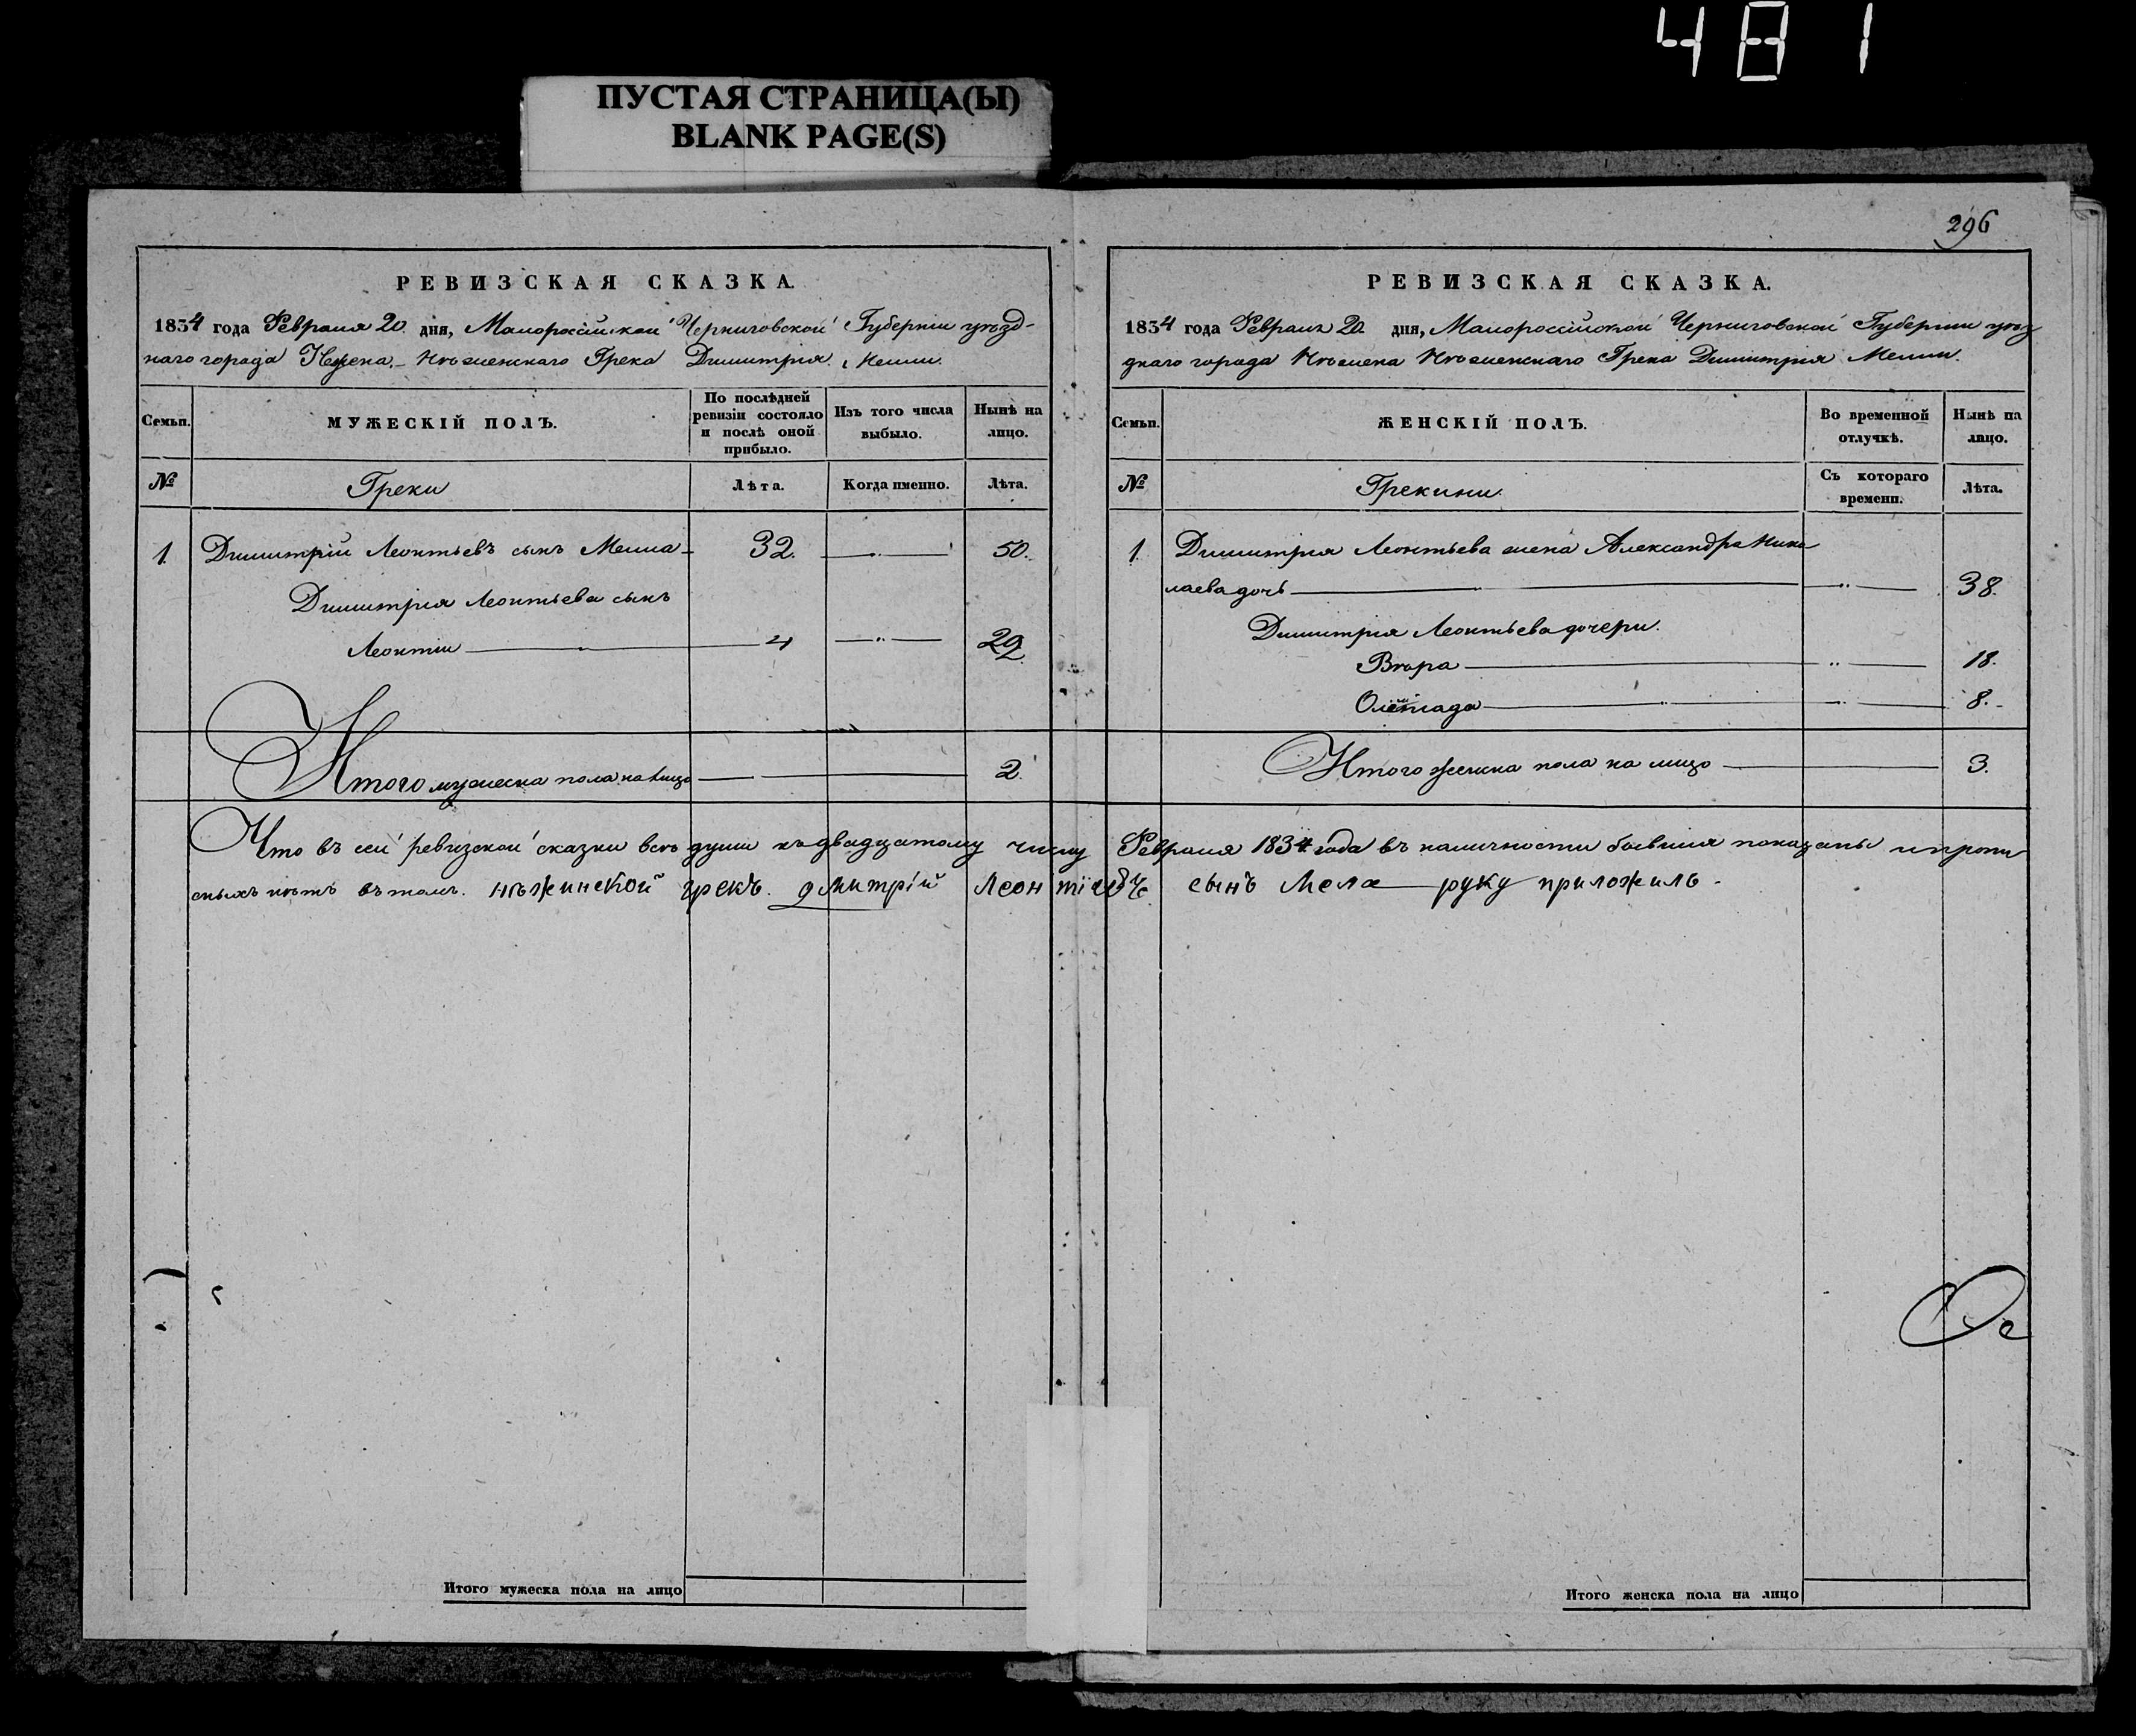 481
ПУСТАЯ СТРАНИЦА(Ы)
BLANK PAGE(S)
РЕВИЗСКАЯ СКАЗКА.
1834 года Февраля 20. дня, Малороссійской Черниговской Губерніи уѣзд-
наго города Нежена, Нѣженскаго Грека Димитрія
Семьи.
МУЖЕСКІЙ ПОЛЪ.
По послѣдней ревизіи состояло и послѣ оной прибыло.
Изъ того числа выбыло.
Нынѣ на лицо.
№
Греки
Лѣта.
Когда именно.
Лѣта.
1. Димитрій Леонтьевъ сынъ 32. 50.
Димитрія Леонтьева сынъ
Леонтій 4 22
Итого мужеска пола на лицо 2
Итого мужеска пола на лицо
296
РЕВИЗСКАЯ СКАЗКА.
1834 года Февраля 20. дня, Малороссійской Черниговской Губерніи уѣз
днаго города Нѣжена Нѣженскаго Грека Димитрія
Семьи.
ЖЕНСКІЙ ПОЛЪ.
Во временной отлучкѣ.
Нынѣ на лицо.
№
Грекини.
Съ котораго времени.
Лѣта.
1 Димитрія Леонтьева жена Александра Нико
лаева дочь 38.
Димитрія Леонтьева дочери.
Вѣра 18.
8.
Итого женска пола на лицо 3.
Что въ сей ревизской сказки всѣ души къ двадцатому числу Февраля 1834 года въ наличности бывшия показаны и пропи
сныхъ нѣтъ въ томъ. нѣжинской грекъ. дмитрій сынъ Мела руку приложилъ.
Итого женска пола на лицо